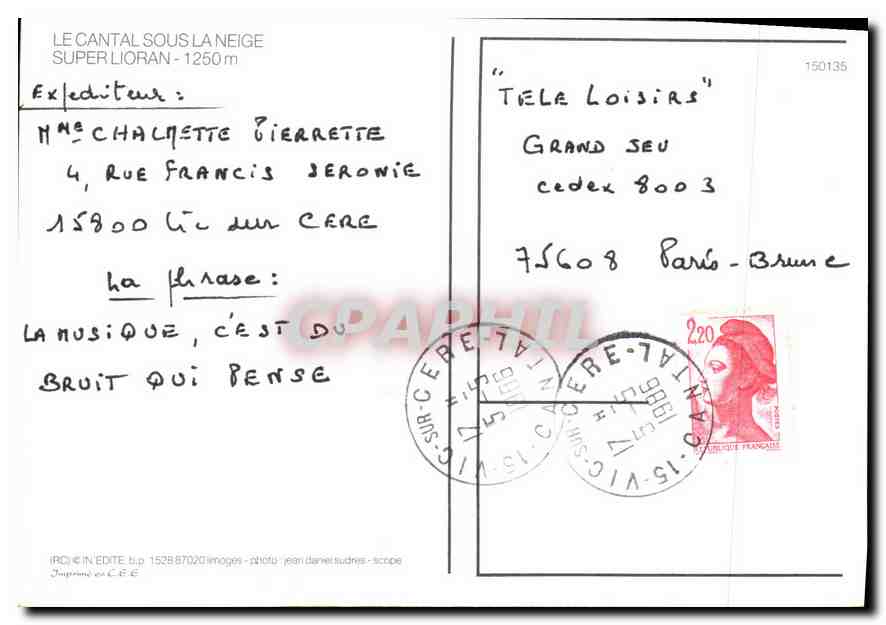 LE CANTAL SOUS LA NEIGE
SUPER LIORAN - 1250 m
Expediteur :
Mme CHALMETTE PIERRETTE
4, RUE FRANCIS SERONIE
15800 Vic sur CERE
La phrase :
LA MUSIQUE, C'EST DU
BRUIT QUI PENSE
(RC) © IN EDITE. b.p. 1528 87020 limoges - photo : jean daniel sudres - scope
Imprimé en C.E.E
150135
"TELE LOISIRS"
GRAND JEU
cedex 8003
75608 Paris - Brune
2,20
POSTES
REPUBLIQUE FRANÇAISE
15-VIC-SUR-CERE-CANTAL
17 H
5 - 5
1986
15-VIC-SUR-CERE-CANTAL
17 H
5 - 5
1986
CPAPHIL